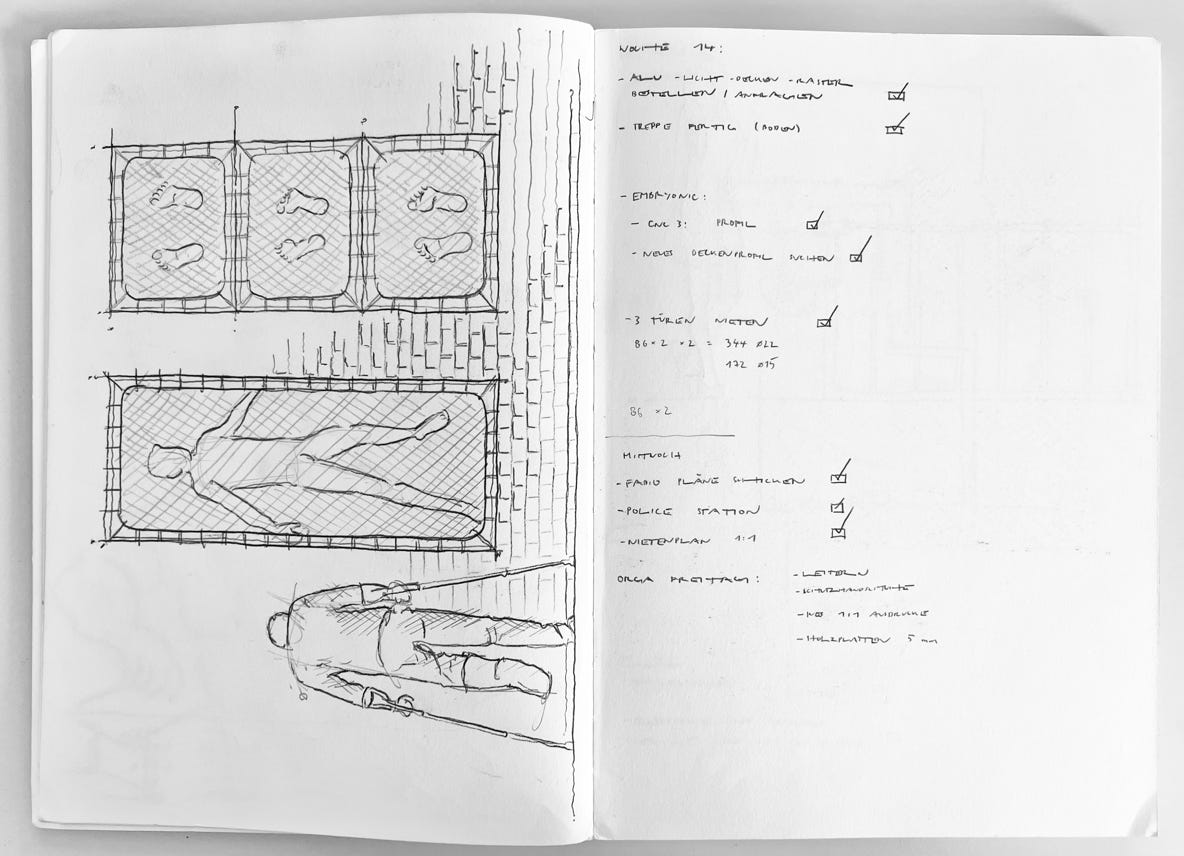 WOCHE 14:
- ALU - LICHT - DECKEN - RASTER
BESTELLEN / ANFRAGEN
- TREPPE FERTIG (BODEN)
- EMBRYONIC:
- CNC 3: PROFIL
- NEUES DECKENPROFIL SUCHEN
- 3 TÜREN NIETEN
86 × 2 × 2 = 344 ø22
172 ø15
86 × 2
MITTWOCH
- FABIO PLÄNE SCHICKEN
- POLICE STATION
- NIETENPLAN 1:1
ORGA FREITAG:
- LEITERN
- SCHUTZHANDSCHUHE
- 1:1 AUSDRUCKE
- HOLZPLATTEN 5 mm